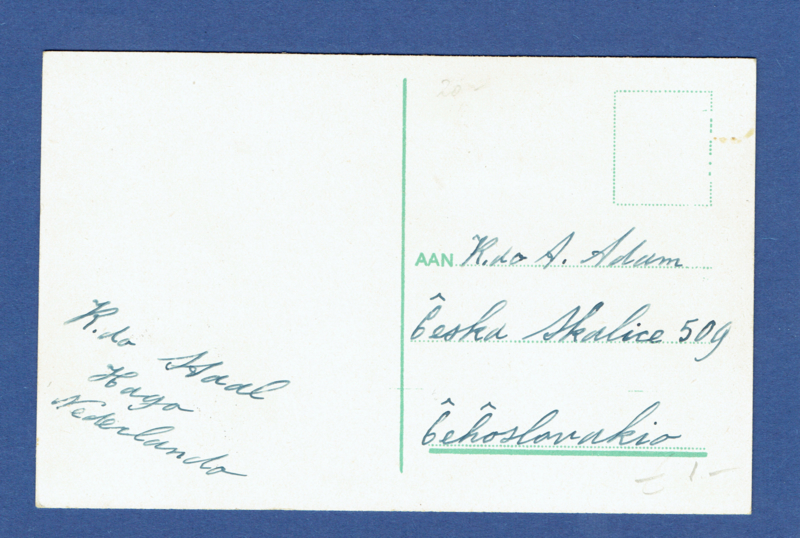 K.do Staal
Hago
Nederlando
AAN K.do A. Adam
Ĉeska Skalice 509
Ĉeĥoslovakio